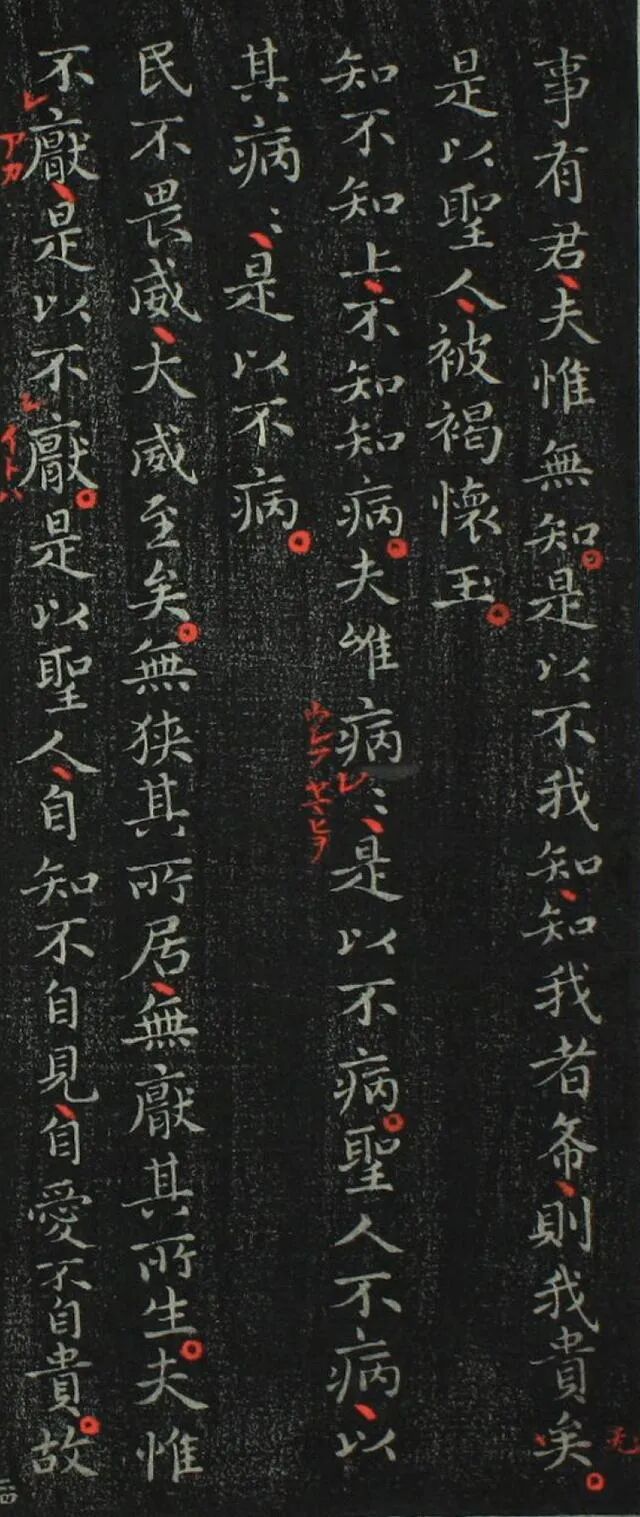 事有君夫惟無知是以不我知知我者希則我貴矣
是以聖人被褐懷玉
知不知上不知知病夫唯病〻是以不病聖人不病以
其病〻是以不病
民不畏威大威至矣無狹其所居無厭其所生夫惟
不厭是以不厭是以聖人自知不自見自愛不自貴故